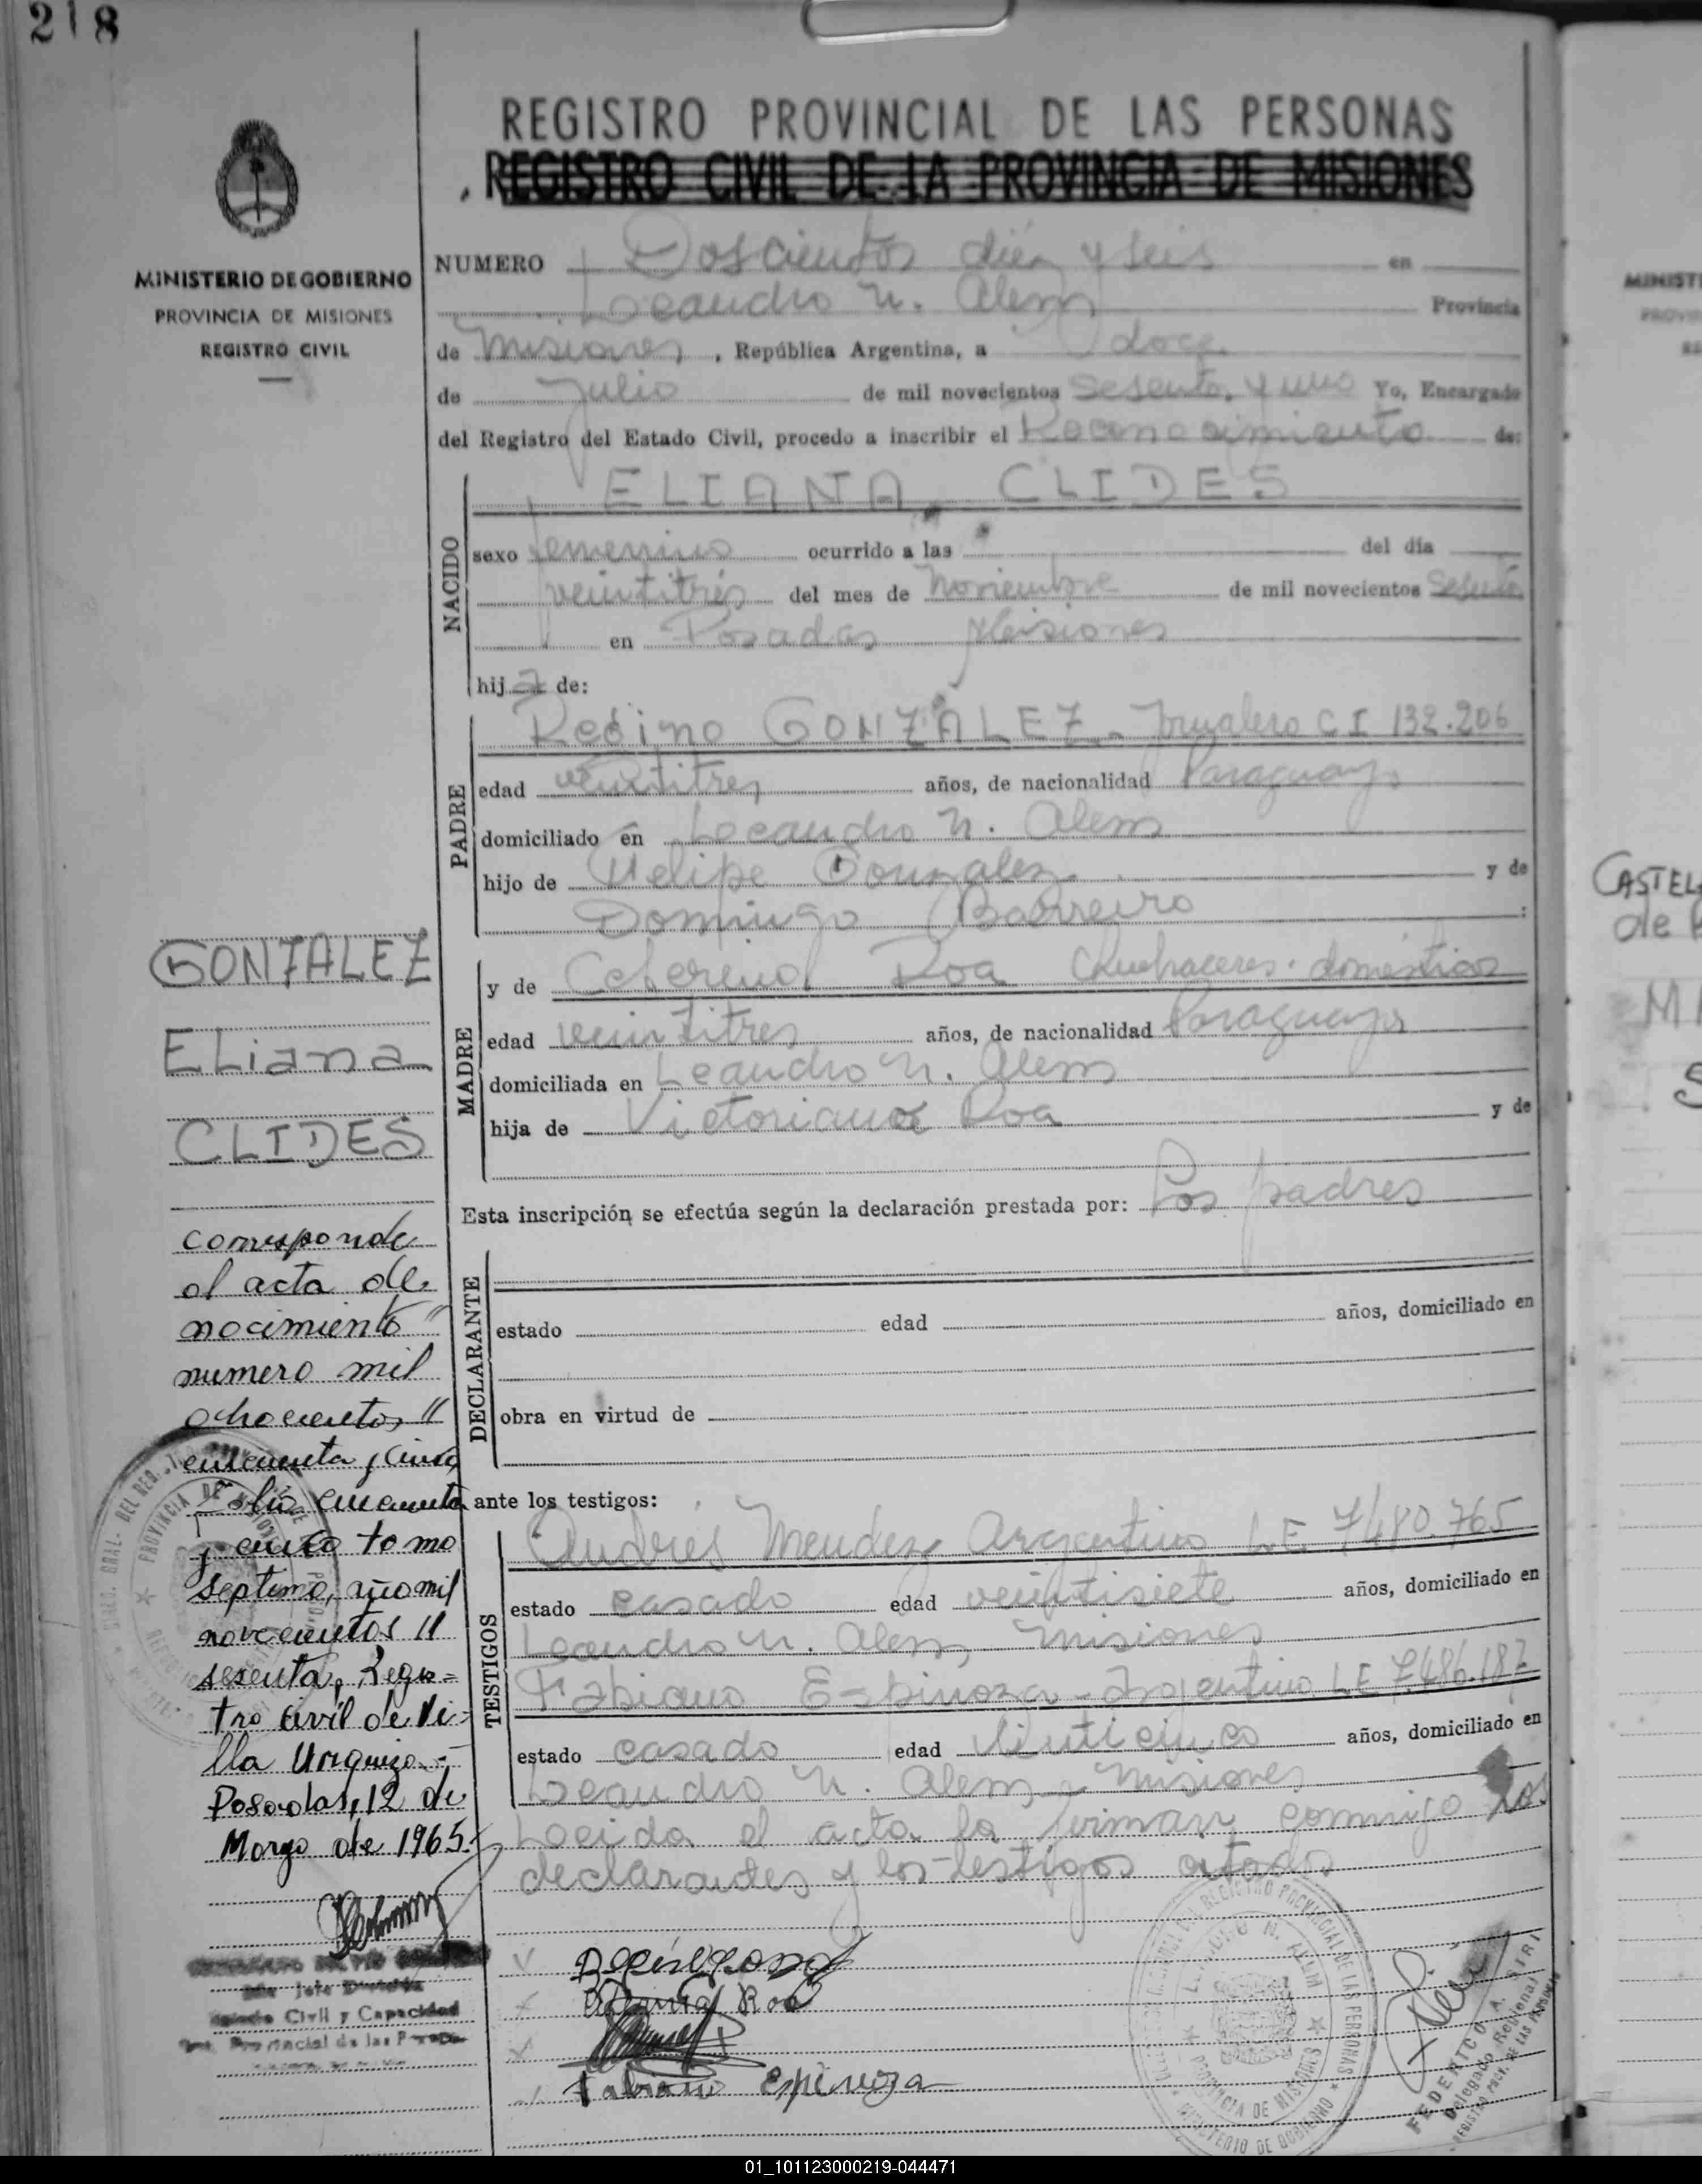 218
REGISTRO PROVINCIAL DE LAS PERSONAS
REGISTRO CIVIL DE LA PROVINCIA DE MISIONES
MINISTERIO DE GOBIERNO
PROVINCIA DE MISIONES
REGISTRO CIVIL
NUMERO Doscientos diéz y seis en
Leandro N. Alem Provincia
de Misiones, República Argentina, a doce
de Julio de mil novecientos sesenta y uno Yo, Encargado
del Registro del Estado Civil, procedo a inscribir el Reconocimiento de:
NACIDO
ELIANA CLIDES
sexo femenino ocurrido a las del día
veintitrés del mes de Noviembre de mil novecientos sesenta
en Posadas Misiones
hija de:
PADRE
GONZALEZ - Jornalero C I 132.206
edad veintitres años, de nacionalidad Paraguayo
domiciliado en Leandro N. Alem
hijo de Felipe Gonzalez y de
Domingo Barreiro :
MADRE
y de Roa Quehaceres domésticos
edad veintitres años, de nacionalidad Paraguaya
domiciliada en Leandro N. Alem
hija de Victoriana Roa y de
Esta inscripción se efectúa según la declaración prestada por: Los padres
DECLARANTE
estado edad años, domiciliado en
obra en virtud de
ante los testigos:
TESTIGOS
Andrés Mendez Argentino L.E. 7/480.765
estado casado edad veintisiete años, domiciliado en
Leandro N. Alem, Misiones
Fabiano Espinoza - Argentino L E 7.486.187
estado casado edad veinticinco años, domiciliado en
Leandro N. Alem - Misiones
Leida el acta la firman conmigo los
declarantes y los testigos citados
Roa
Fabiano Espinoza
GONZALEZ
Eliana
CLIDES
corresponde
al acta de
nacimiento "
numero mil
ochocientos "
cincuenta y cinco
Folio cincuenta
y cinco tomo
septimo, año mil
novecientos "
sesenta, Regis=
tro Civil de Vi=
lla Urquiza.-
Posadas, 12 de
Marzo de 1965.
Civil y Capacidad
PROVINCIA DE MISIONES
REGISTRO PROVINCIAL DE LAS PERSONAS
LEANDRO N. ALEM
PROVINCIA DE MISIONES
MINISTERIO DE GOBIERNO
FEDERICO A.
Delegado Regional
MINIST
CASTEL
de
01_101123000219-044471